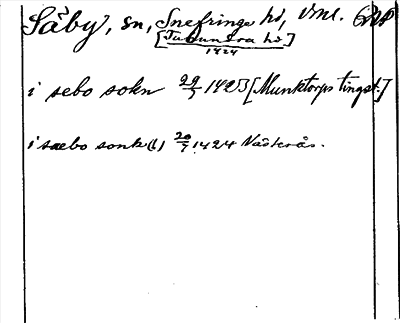 Säby, sn, Snefringe hd, Vml.
[Tuhundra hd]
1424
i sebo sokn 29/5 1423 [Munktorps tingst.]
i saebo sonk(!) 20/7 1424 Västerås.